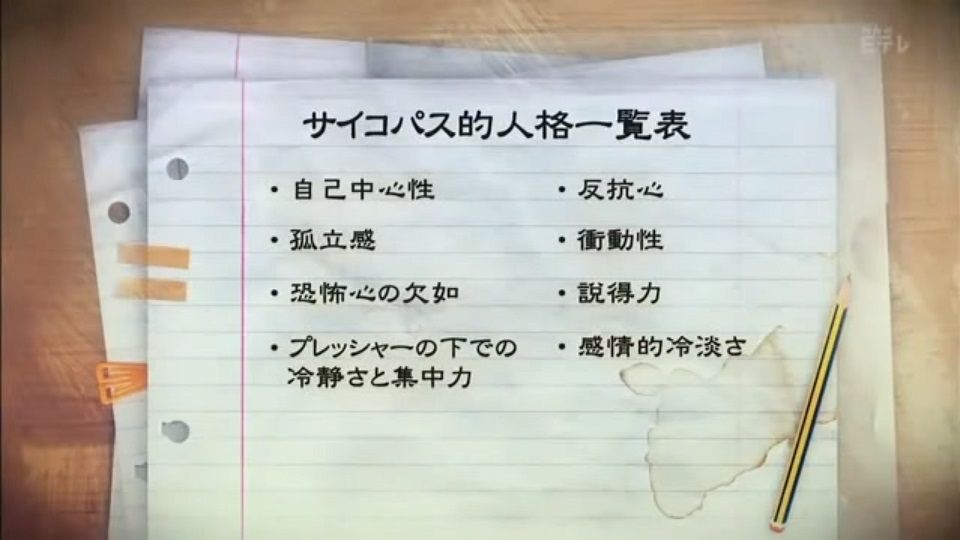 Eテレ
サイコパス的人格一覧表
・自己中心性
・孤立感
・恐怖心の欠如
・プレッシャーの下での
冷静さと集中力
・反抗心
・衝動性
・説得力
・感情的冷淡さ